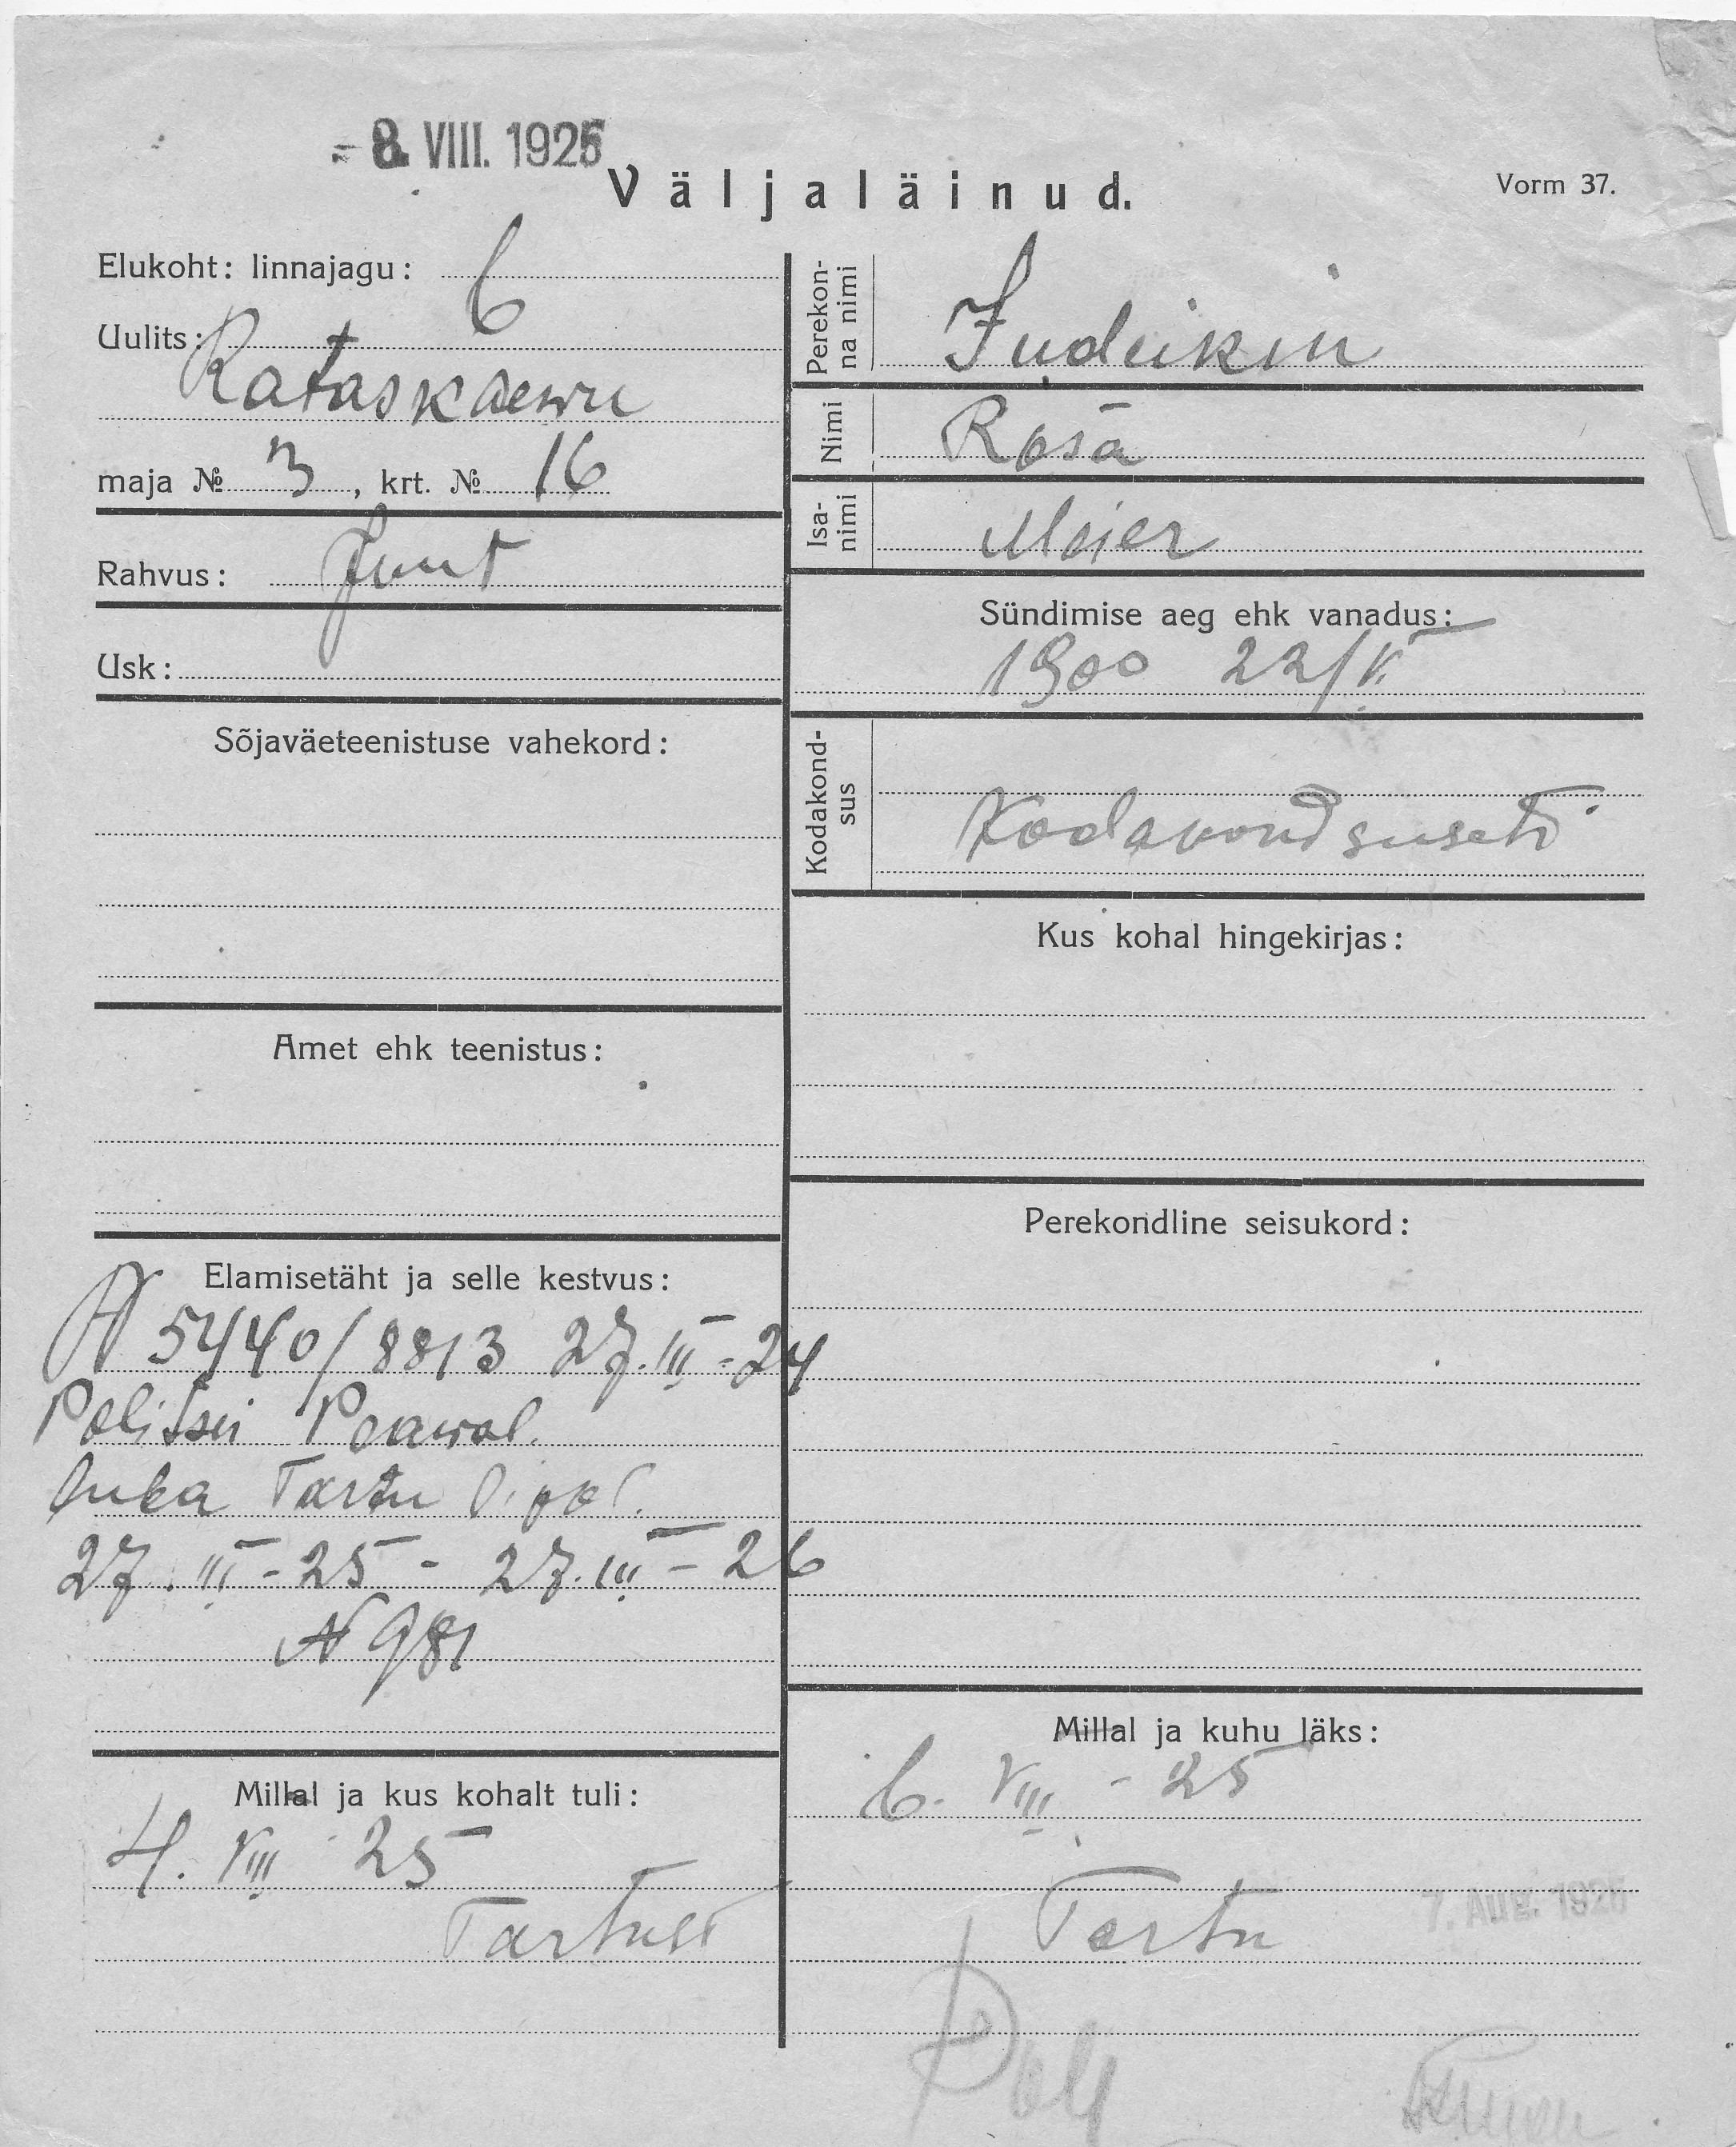 8. VIII. 1925
Väljaläinud.
Vorm 37.
Elukoht: linnajagu: 6
Uulits: Rataskaewu
maja № 3, krt. № 16
Rahvus: Juut
Usk:
Sõjaväeteenistuse vahekord:
Amet ehk teenistus:
Elamisetäht ja selle kestvus:
N 5440/8813 27.III-24
Politsei Peawal.
Tartu
27.III-25 - 27.III-26
N 981
Millal ja kus kohalt tuli:
4. VIII 25
Tartust
Perekon-
na nimi
Judeikin
Nimi Rosa
Isa-
nimi
Meier
Sündimise aeg ehk vanadus:
1900 22/V
Kodakond-
sus
Kodakondsuseta
Kus kohal hingekirjas:
Perekondline seisukord:
Millal ja kuhu läks:
6. VIII - 25
7. Aug. 1925
Tartu